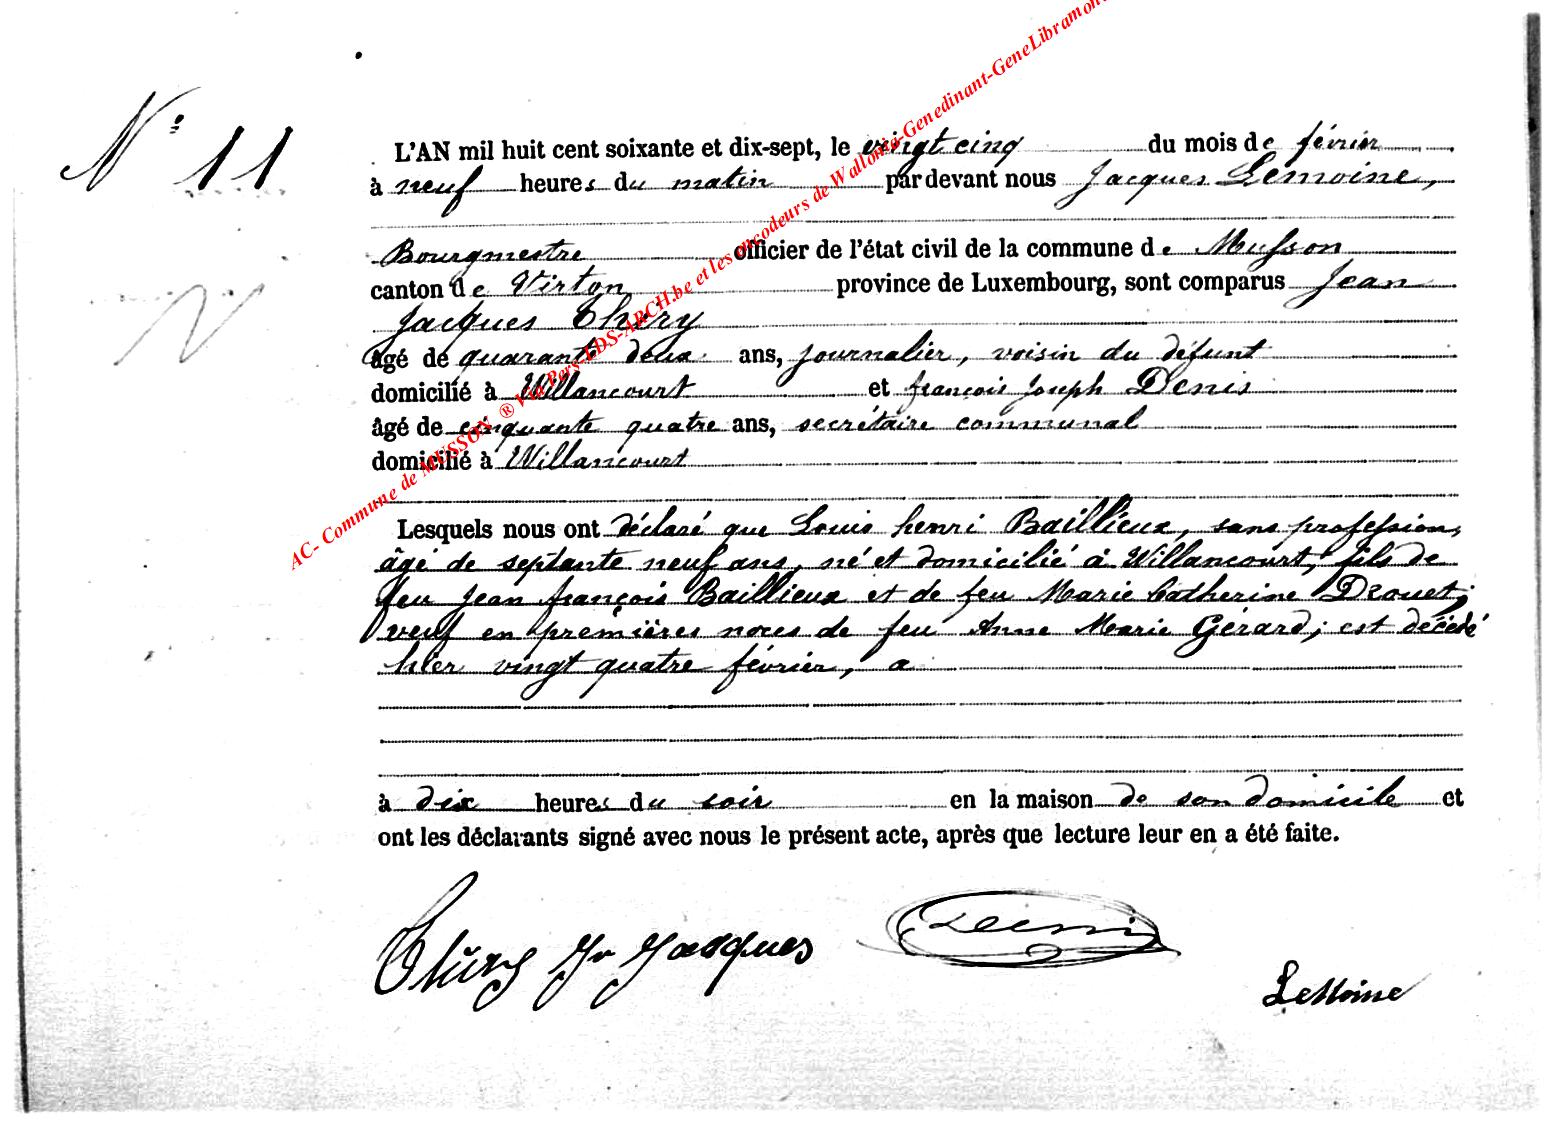 N° 11
L'AN mil huit cent soixante et dix-sept, le vingt cinq du mois de février
à neuf heures du matin par devant nous Jacques Lemoine,
Bourgmestre officier de l'état civil de la commune de Musson
canton de Virton province de Luxembourg, sont comparus Jean
Jacques Thiry
âgé de quarante deux ans, journalier, voisin du défunt
domicilié à Willancourt et françois Joseph Denis
âgé de cinquante quatre ans, secrétaire communal
domicilié à Willancourt
Lesquels nous ont déclaré que Louis henri Baillieux, sans profession,
âgé de septante neuf ans, né et domicilié à Willancourt, fils de
feu Jean françois Baillieux et de feu Marie Catherine Drouet;
veuf en premières noces de feu Anne Marie Gérard; est décédé
hier vingt quatre février, a
à dix heures du soir en la maison de son domicile et
ont les déclarants signé avec nous le présent acte, après que lecture leur en a été faite.
Thiry Jn Jacques Denis
Lemoine
AC- Commune de MUSSON ® Via Pers-LDS-ARCH.be et les encodeurs de Wallonia-Genedinant-GeneLibramont